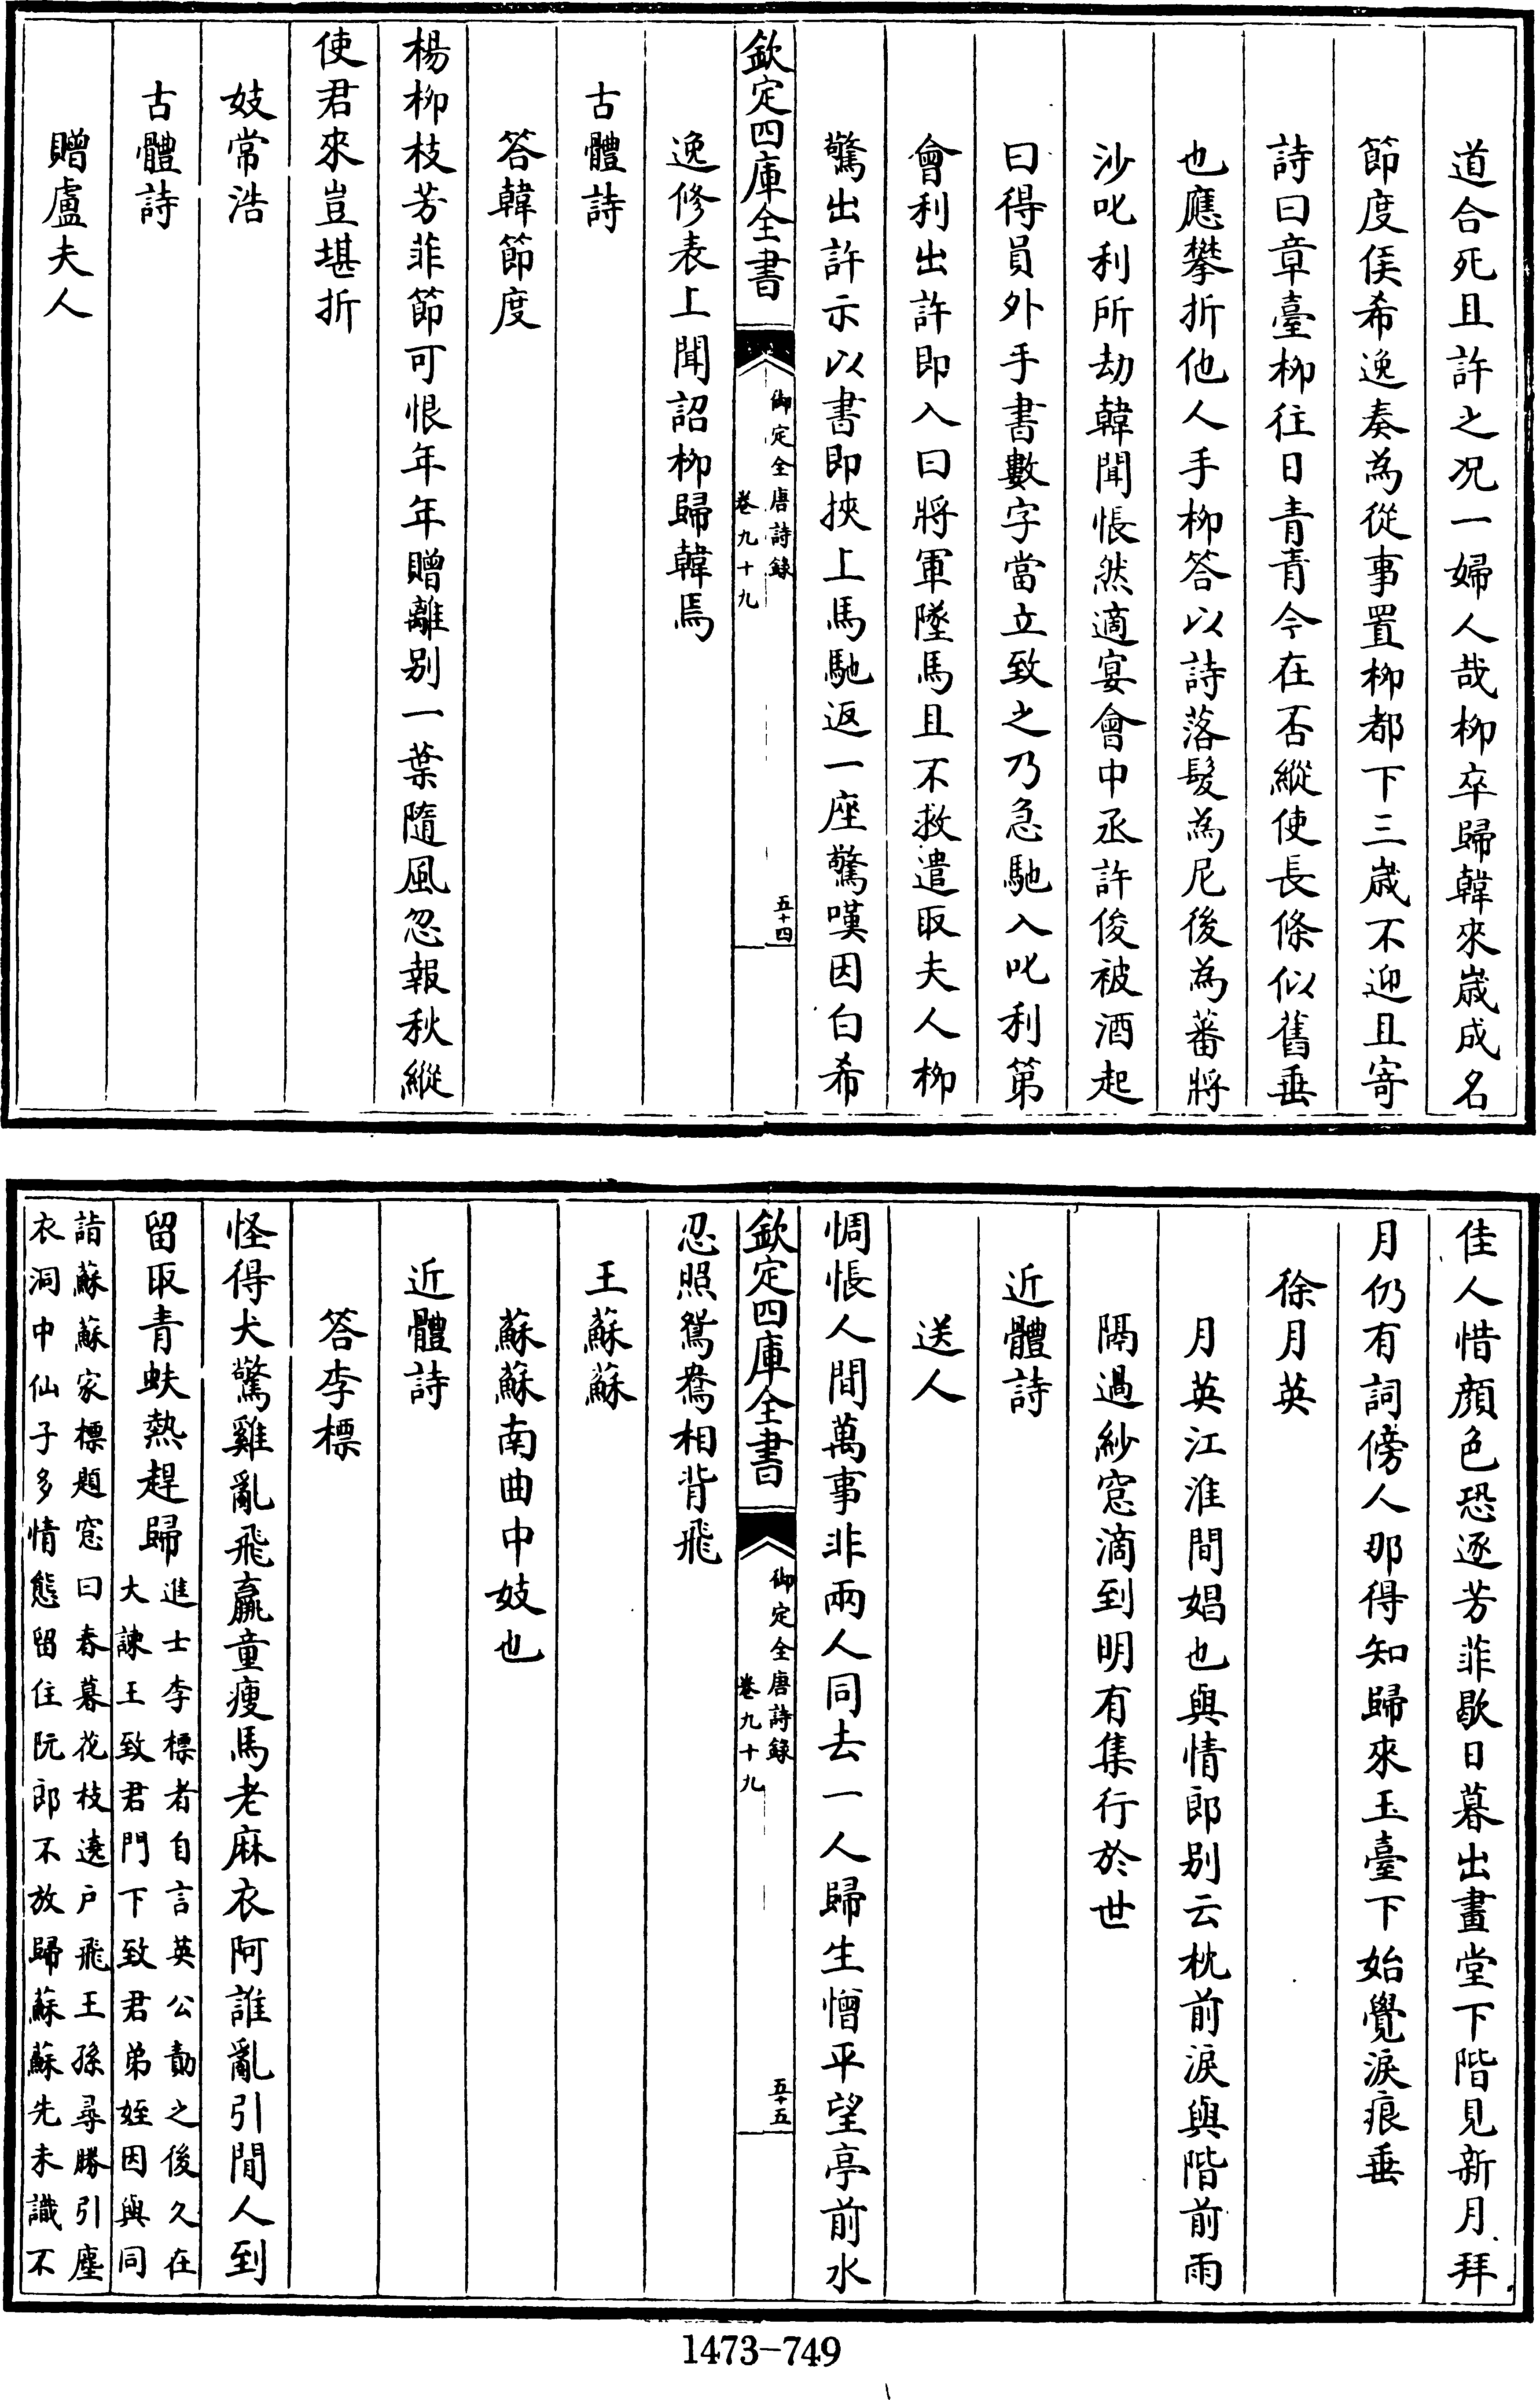 道合死且許之况一婦人哉栁卒歸韓來嵗成名
節度侯希逸奏為從事置栁都下三嵗不迎且寄
詩曰章臺栁往日青青今在否縱使長條似舊垂
也應攀折他人手栁答以詩落髮為尼後為蕃將
沙叱利所劫韓聞悵然適宴會中丞許俊被酒起
曰得員外手書數字當立致之乃急馳入叱利第
會利出許即入曰將軍墜馬且不救遣取夫人栁
驚出許示以書即挾上馬馳返一座驚嘆因白希
欽定四庫全書
御定全唐詩錄
卷九十九
五十四
逸修表上聞詔栁歸韓焉
古體詩
答韓節度
楊栁枝芳菲節可恨年年贈離别一葉隨風忽報秋縱
使君來豈堪折
妓常浩
古體詩
贈盧夫人
佳人惜顔色恐逐芳菲歇日暮出畫堂下階見新月拜
月仍有詞傍人那得知歸來玉臺下始覺淚痕垂
徐月英
月英江淮間娼也與情郎别云枕前淚與階前雨
隔過紗窓滴到明有集行於世
近體詩
送人
惆悵人間萬事非兩人同去一人歸生憎平望亭前水
欽定四庫全書
御定全唐詩錄
卷九十九
五十五
忍照鴛鴦相背飛
王蘇蘇
蘇蘇南曲中妓也
近體詩
答李標
怪得犬驚雞亂飛羸童瘦馬老麻衣阿誰亂引閒人到
留取青蚨熱趕歸
進士李標者自言英公勣之後久在
大諫王致君門下致君弟姪因與同
詣蘇蘇家標題窓曰春暮花枝遶户飛王孫尋勝引塵
衣洞中仙子多情態留住阮郎不放歸蘇蘇先未識不
1473-749